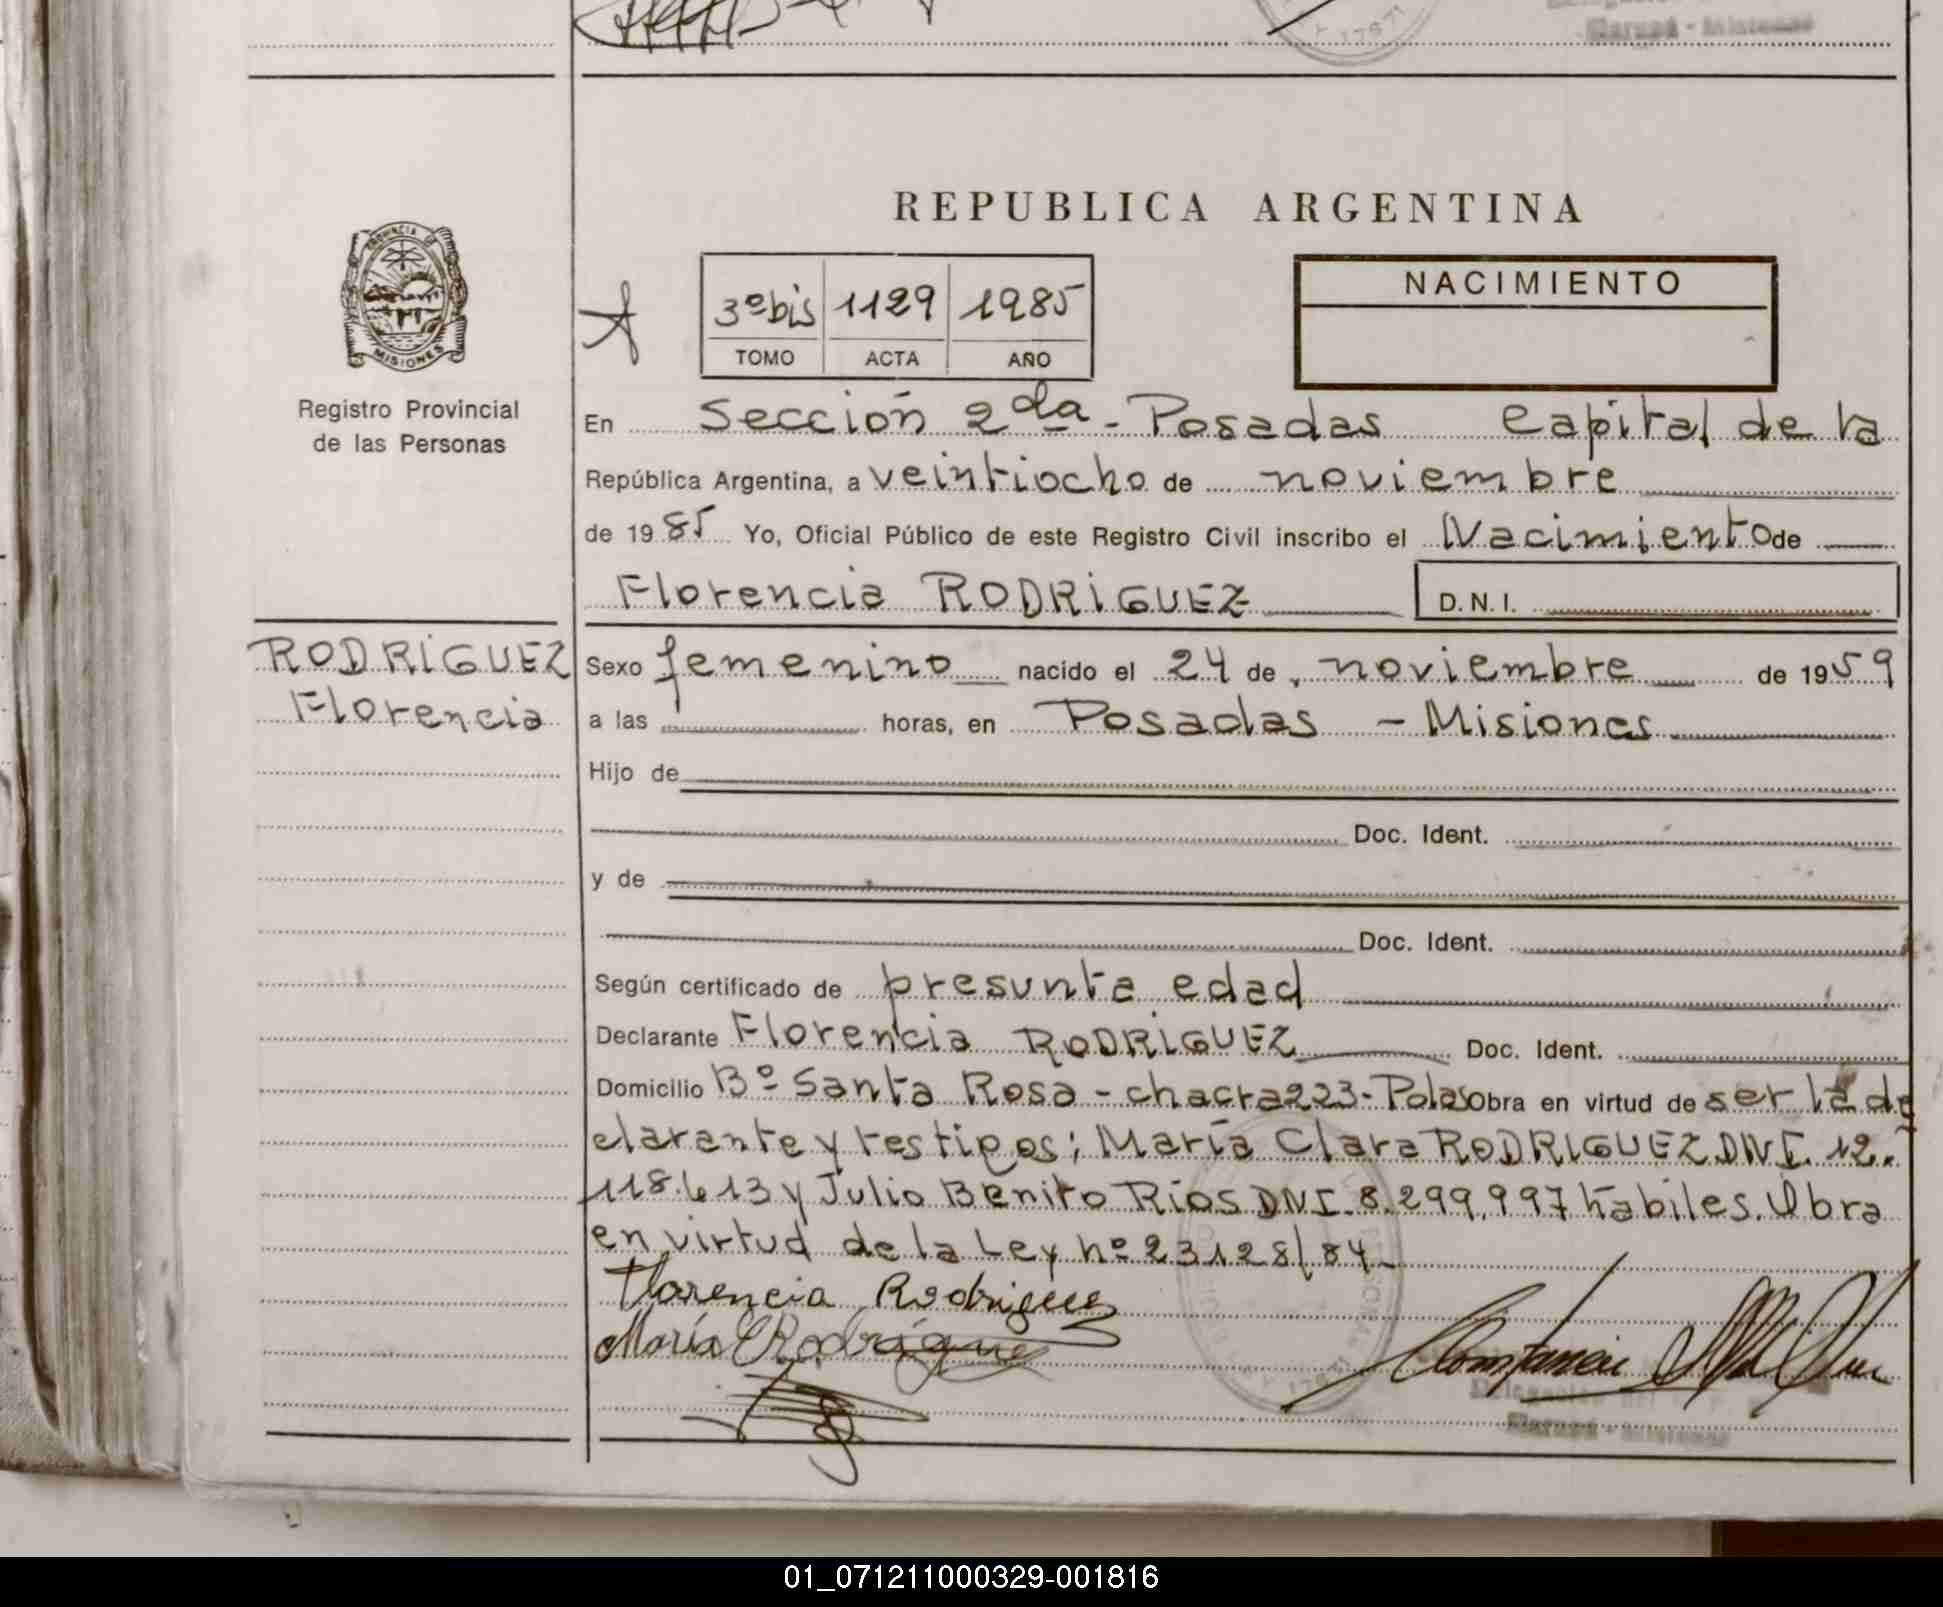 REPUBLICA ARGENTINA
PROVINCIA DE
MISIONES
Registro Provincial
de las Personas
3º bis 1129 1985
TOMO ACTA AÑO
NACIMIENTO
En Sección 2da - Posadas Capital de la
República Argentina, a veintiocho de noviembre
de 1985 Yo, Oficial Público de este Registro Civil inscribo el Nacimiento de
Florencia RODRIGUEZ D.N.I.
RODRIGUEZ
Florencia
Sexo femenino nacido el 24 de noviembre de 1959
a las horas, en Posadas - Misiones
Hijo de
Doc. Ident.
y de
Doc. Ident.
Según certificado de presunta edad
Declarante Florencia RODRIGUEZ Doc. Ident.
Domicilio Bº Santa Rosa - chacra 223 - Pdas Obra en virtud de ser la de
clarante y testigos; María Clara RODRIGUEZ DNI. 12.
118.613 y Julio Benito Ríos DNI. 8.299.997 hábiles. Obra
en virtud de la Ley nº 23128/84
Florencia Rodriguez
María C Rodriguez
Garupá - Misiones
01_071211000329-001816